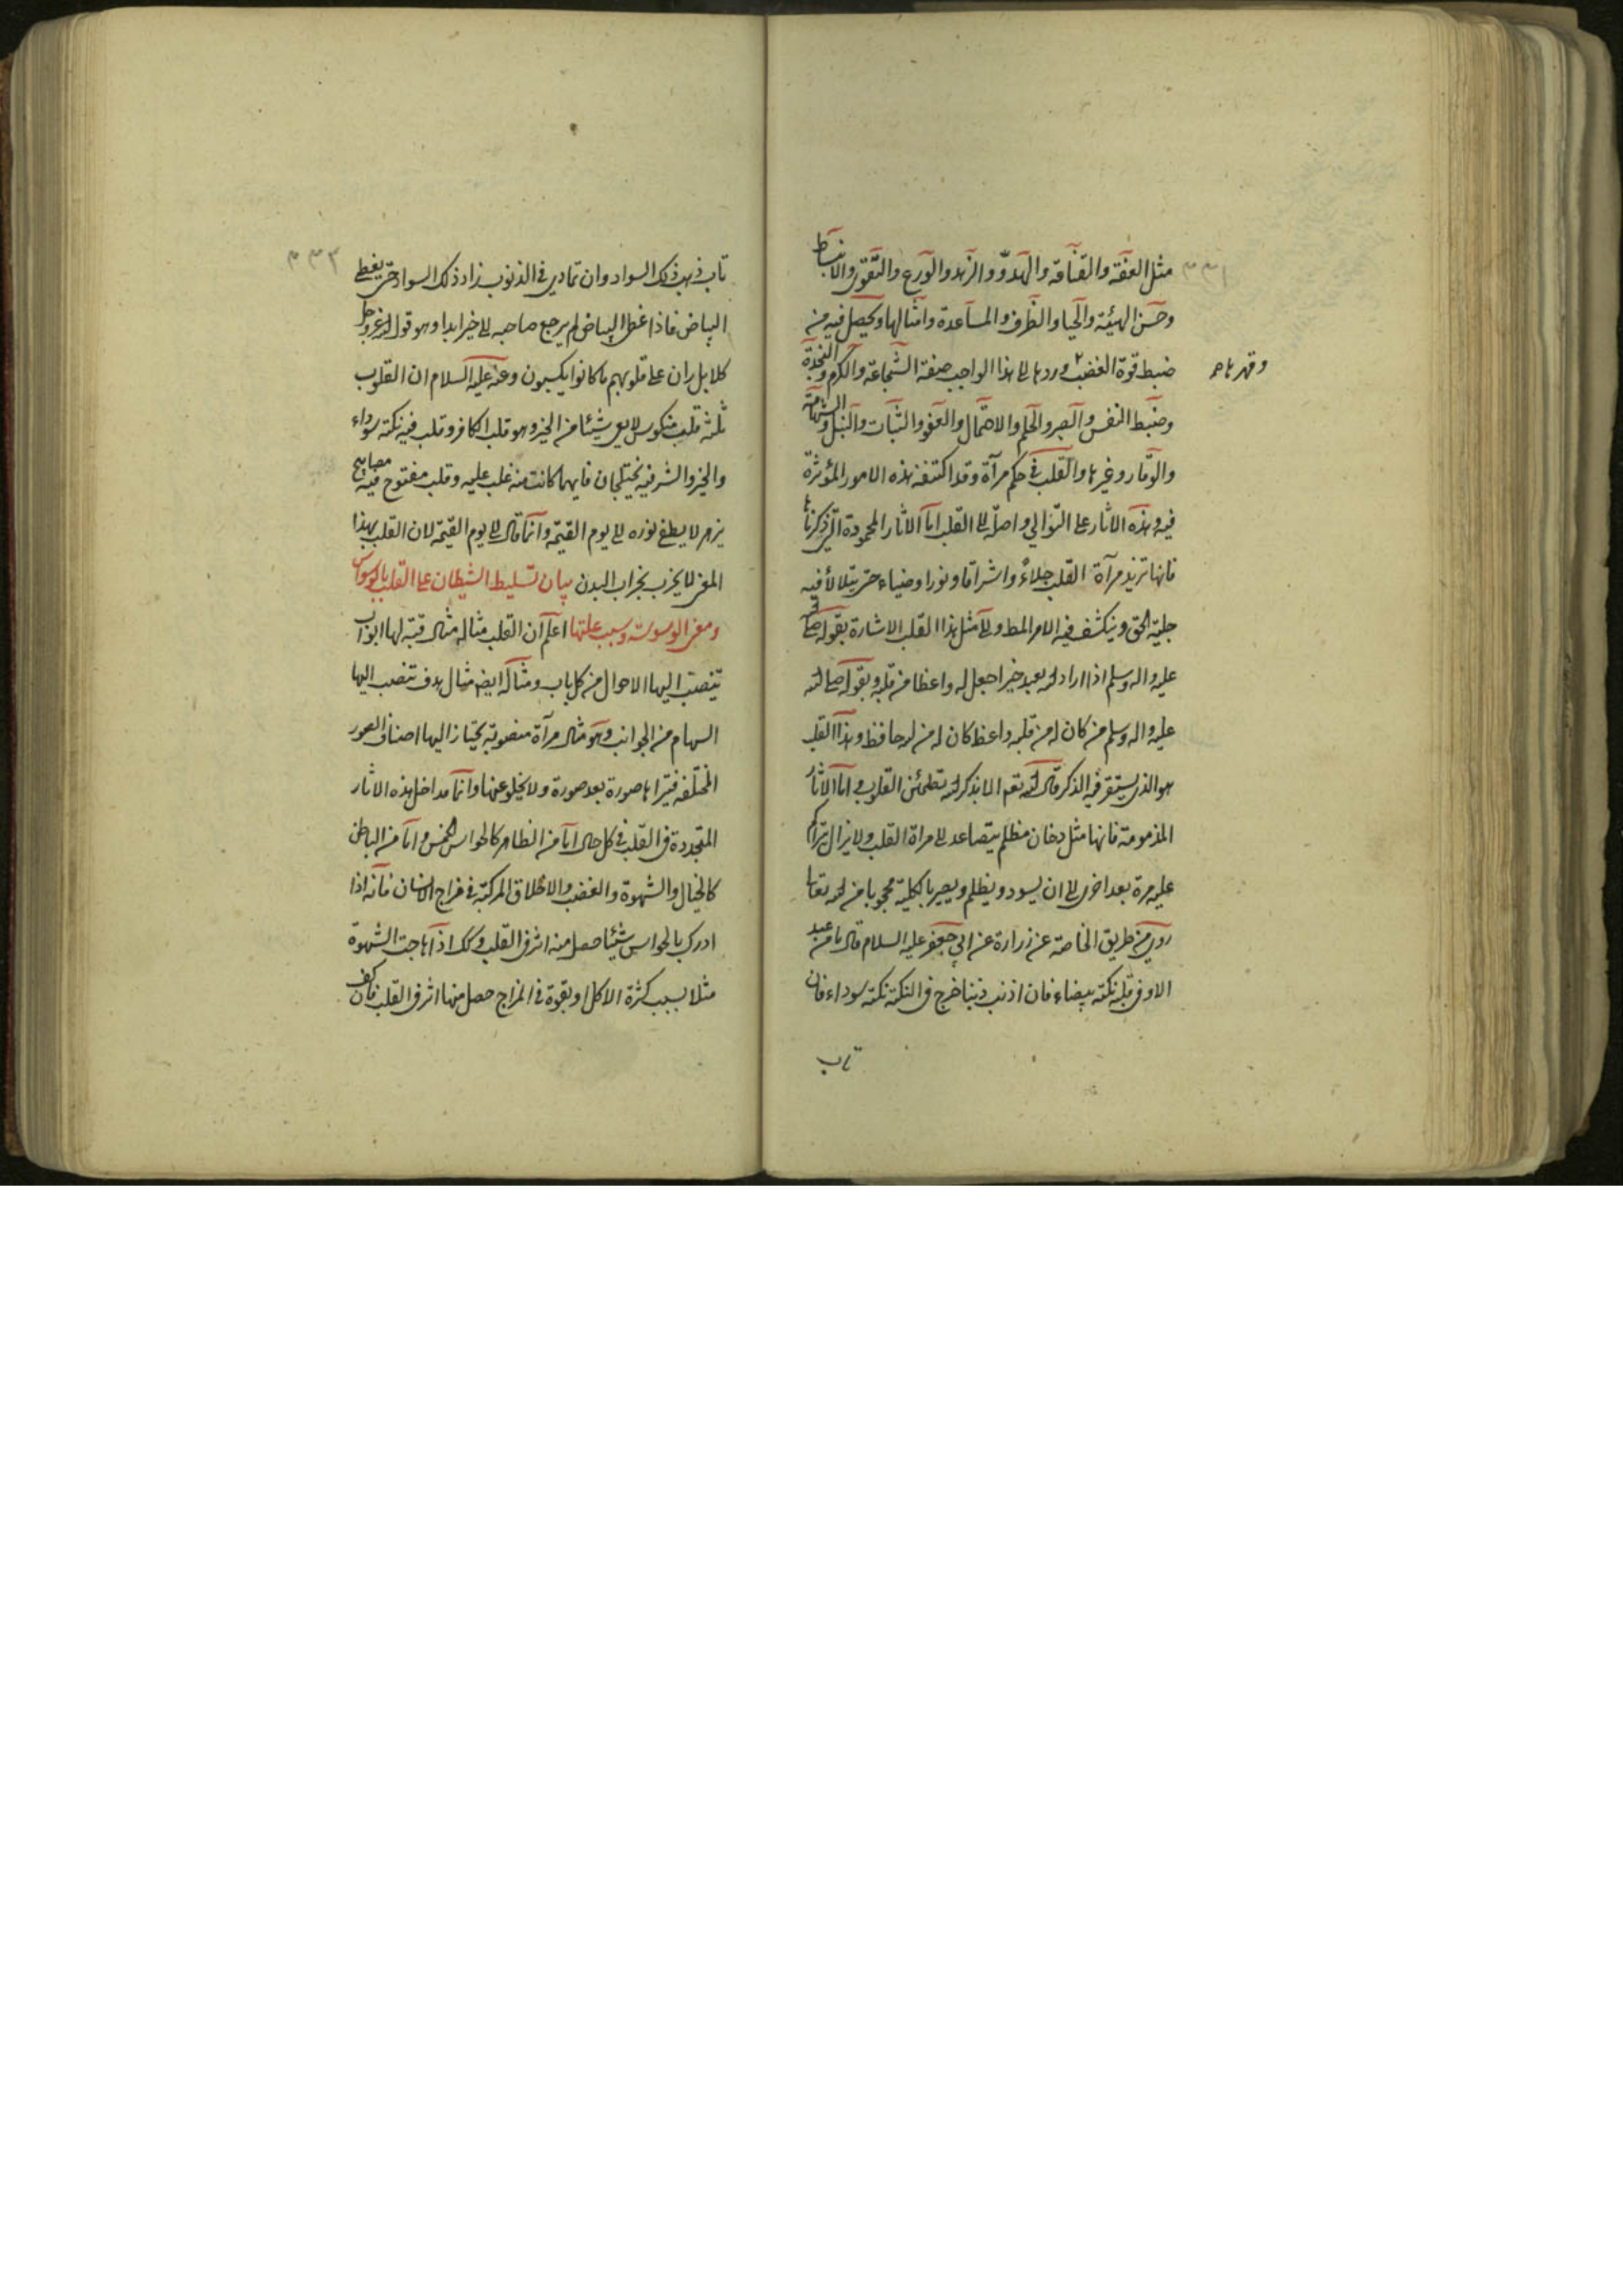 ٣٣١
مثل العفّة والقناعة والهدوّ والزهد والورع والتّقوى والانبساط
وحسن الهيئة والحيا والظرف والمساعدة وامثالها ويحصل فيه من
ضبط قوة الغضب وردها الى هذا الواجب صفة الشجاعة والكرم والنجدة
وقهرها صح
وضبط النفس والصبر والحلم والاحتمال والعفو والثبات والنبل والشهامة
والوقار وغيرها والقلب في حكم مرآة وقد اكتنفته هذه الامور المؤثرة
فيه وهذه الاثار على التوالي واصلة الى القلب اما الاثار المحمودة التي ذكرناها
فانها تزيد مرآة القلب جلاءً واشراقا ونورا وضياء حتى يتلالأ فيه
جلية الحق وينكشف فيه الامر المط والى مثل هذا القلب الاشارة بقوله صلى الله
عليه واله وسلم اذا اراد الله بعبد خيرا جعل له واعظا من قلبه وبقوله صلى الله
عليه واله وسلم من كان له من قلبه واعظ كان له من الله حافظ وهذا القلب
هو الذي يستقر فيه الذكر قال الله تعم الا بذكر الله تطمئن القلوب واما الاثار
المذمومة فانها مثل دخان مظلم يتصاعد الى مراة القلب ولا يزال يتراكم
عليه مرة بعد اخرى الى ان يسود ويظلم ويصير بالكلية محجوبا من الله تعالى
روي من طريق الخاصة عن زرارة عن ابي جعفر عليه السلام قال ما من عبد
الا وفي قلبه نكتة بيضاء فان اذنب ذنبا خرج في النكتة نكتة سوداء فان
تاب
٣٣٢
تاب ذهب ذلك السواد وان تمادى في الذنوب زاد ذلك السواد حتى يغطي
البياض فاذا غطى البياض لم يرجع صاحبه الى خير ابدا وهو قول الله عز وجل
كلا بل ران على قلوبهم ما كانوا يكسبون وعنه عليه السلام ان القلوب
ثلثة قلب منكوس لا يعي شيئا من الخير وهو قلب الكافر وقلب فيه نكتة سوداء
والخير والشر فيه يختلجان فايهما كانت منه غلب عليه وقلب مفتوح فيه مصابيح
يزهر لا يطفئ نوره الى يوم القيمة وانما قال الى يوم القيمة لان القلب بهذا
المعنى لا يخرب بخراب البدن بيان تسليط الشيطان على القلب بالوسواس
ومعنى الوسوسة وسبب علتها اعلم ان القلب مثاله مثال قبة لها ابواب
تنصب اليها الاحوال من كل باب ومثاله ايض مثال هدف تنصب اليها
السهام من الجوانب وهو مثال مرآة منصوبة يجتاز اليها اصناف الصور
المختلفة فتراها صورة بعد صورة ولا يخلو عنها وانما مداخل هذه الاثار
المتجددة في القلب في كل حال اما من الظاهر كالحواس الخمس واما من الباطن
كالخيال والشهوة والغضب والاخلاق المركبة في مزاج الانسان فانه اذا
ادرك بالحواس شيئا حصل منه اثر في القلب وكك اذا هاجت الشهوة
مثلا بسبب كثرة الاكل او بقوة في المزاج حصل منها اثر في القلب فان كف